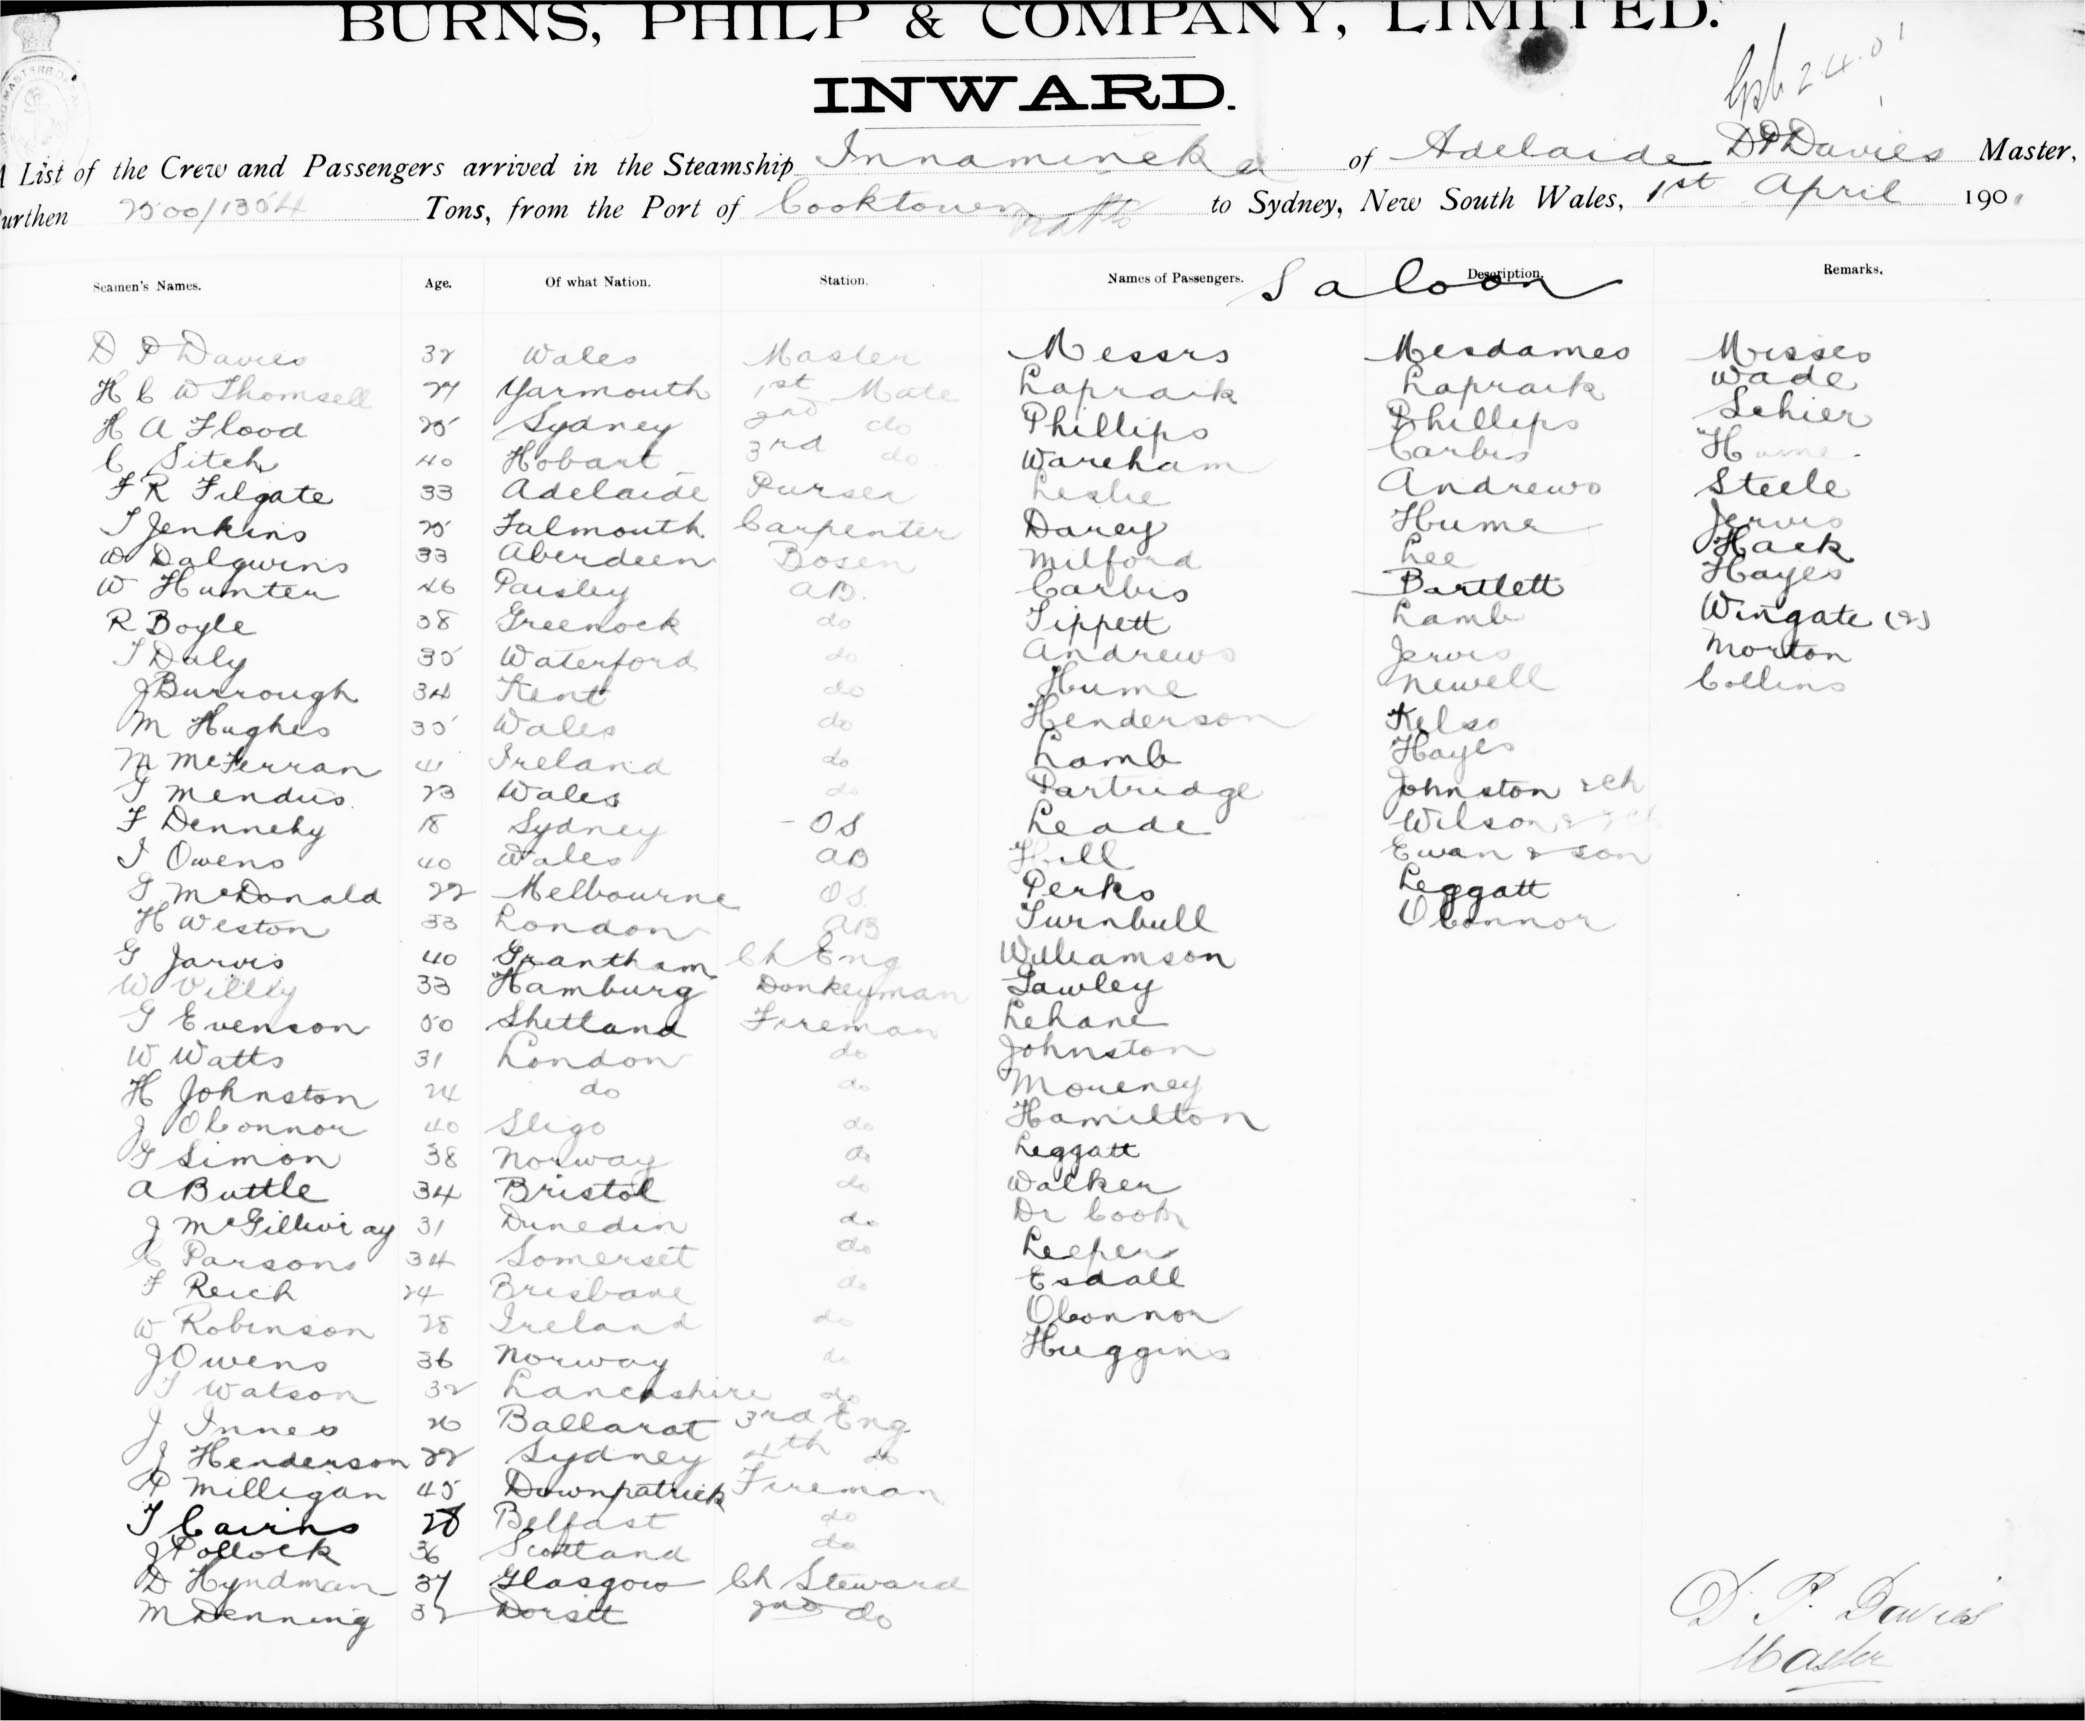 BURNS, PHILP & COMPANY, LIMITED.
INWARD.
24.01
A List of the Crew and Passengers arrived in the Steamship Innamincka of Adelaide D P Davies Master,
Burthen 2500/1354 Tons, from the Port of Cooktown to Sydney, New South Wales, 1st April 1901
Seamen's Names. Age. Of what Nation. Station. Names of Passengers. Saloon Description. Remarks.
D P Davies 32 Wales Master Messrs Mesdames Misses
H C W Thomsell 27 Yarmouth 1st Mate Lapraik Lapraik Wade
H A Flood 25 Sydney 2nd do Phillips Phillips Schier
C Sitch 40 Hobart 3rd do Wareham Carbis Hume
F R Filgate 33 Adelaide Purser Leslie Andrews Steele
T Jenkins 25 Falmouth Carpenter Darcy Hume Jervis
D Dalgwins 33 Aberdeen Bosen Milford Lee Hack
W Hunter 46 Paisley AB. Carbis Bartlett Hayes
R Boyle 38 Greenock do Tippett Lamb Wingate (2)
T Daly 35 Waterford do Andrews Jervis Morton
J Burrough 34 Kent do Hume Newell Collins
M Hughes 35 Wales do Henderson Kelso
M McFerran 41 Ireland do Lamb Hayes
T Mendus 23 Wales do Partridge Johnston & ch
F Dennehy 18 Sydney - OS Leade Wilson
I Owens 40 Wales AB Hill Ewan & son
G McDonald 22 Melbourne OS. Perks Leggatt
H Weston 33 London AB Turnbull OConnor
G Jarvis 40 Grantham Ch Eng Williamson
W Villy 33 Hamburg Donkeyman Gawley
G Evenson 50 Shetland Fireman Lehane
W Watts 31 London do Johnston
H Johnston 24 do do Moueney
J OConnor 40 Sligo do Hamilton
G Simon 38 Norway do Leggatt
A Buttle 34 Bristol do Walker
J McGillivray 31 Dunedin do Dr Cook
C Parsons 34 Somerset do Leeper
F Reich 24 Brisbane do Esdall
W Robinson 28 Ireland do OConnor
J Owens 36 Norway do Huggins
T Watson 32 Lancashire do
J Innes 26 Ballarat 3rd Eng
J Henderson 22 Sydney 4th do
P Milligan 45 Downpatrick Fireman
T Cairns 28 Belfast do
J Pollock 36 Scotland do
D Hyndman 37 Glasgow Ch Steward
M Denning 32 Dorset 2nd do
D. P. Davies
Master